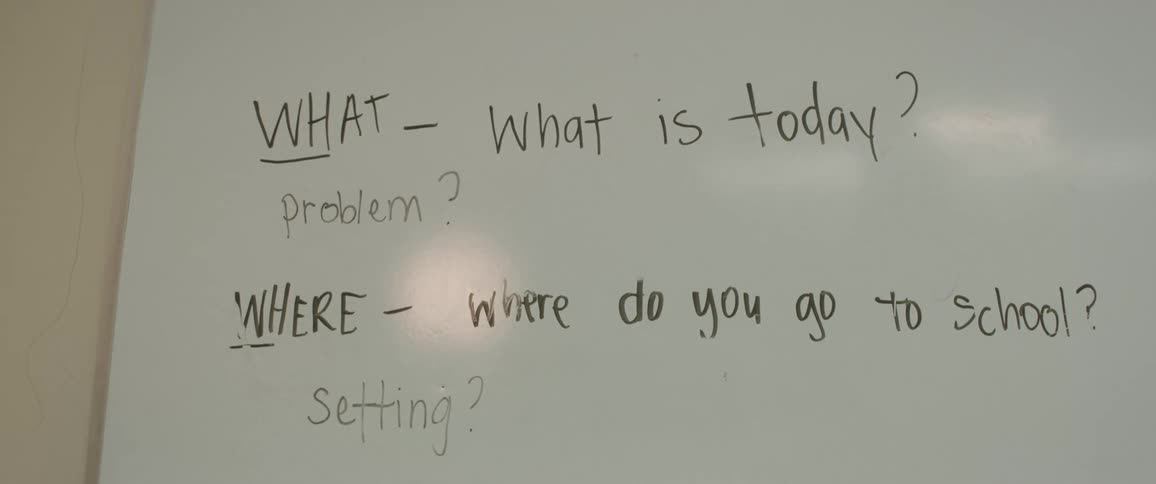 WHAT – What is today?
problem?
WHERE – where do you go to school?
setting?